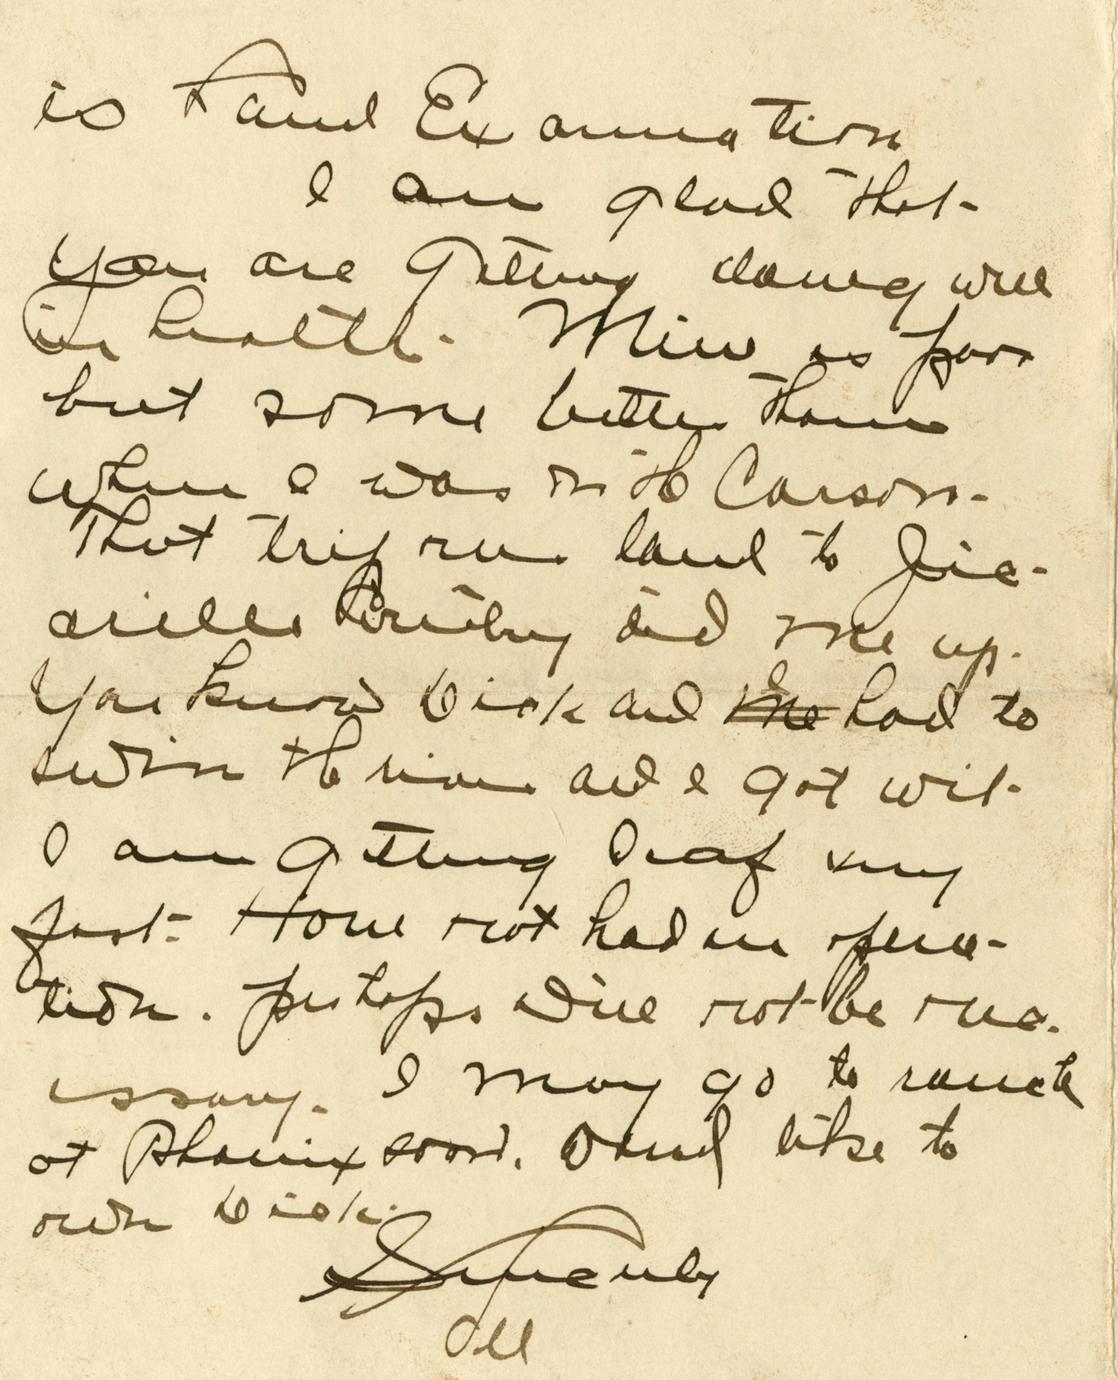 is Land Examination
I am glad that
you are getting along well
in health. Mine is poor
but some better than
when I was with Carson.
That trip over land to Jic-
arilla Country did me up.
You know Dick and I had to
swim the river and I got wet.
I am getting Deaf very
fast. Have not had an opera-
tion. perhaps will not be nec-
essary. I may go to ranch
at Phoenix soon. Would like to
own Dick.
Sincerely